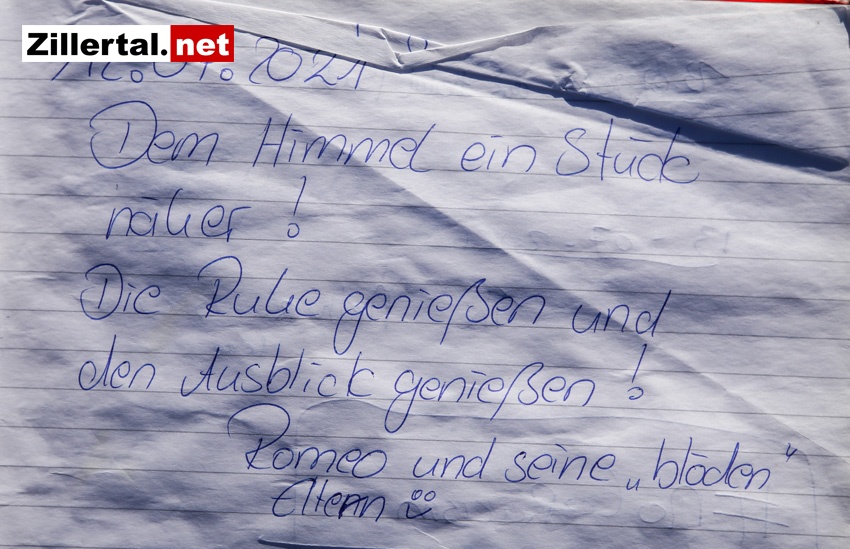 Zillertal.net
12.01.2021
Dem Himmel ein Stück
näher!
Die Ruhe genießen und
den Ausblick genießen!
Romeo und seine „blöden“
Eltern